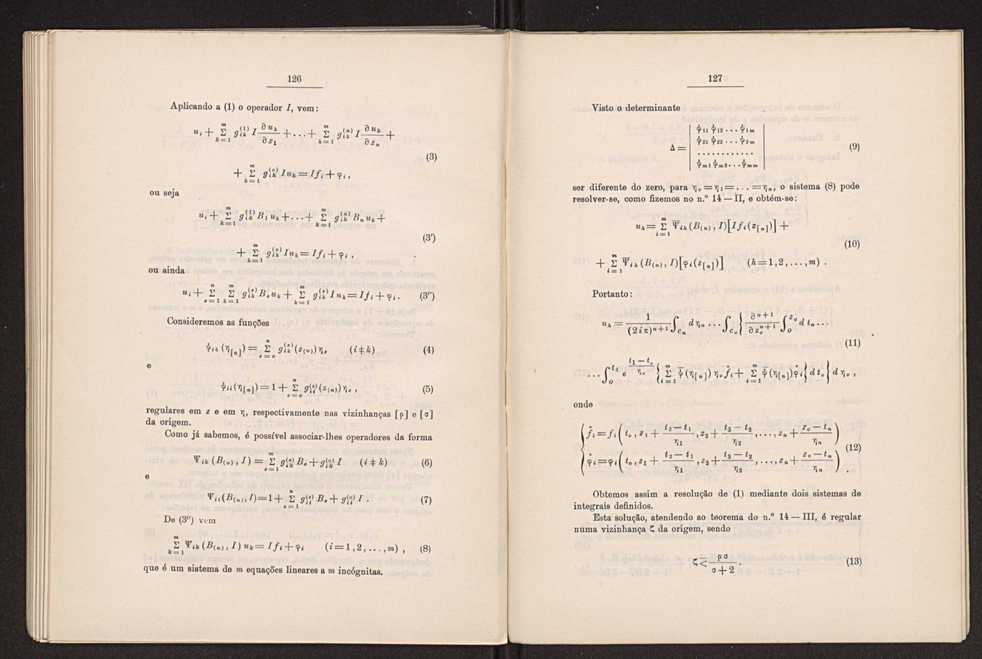 126
Aplicando a (1) o operador I, vem:
u_i + Σ_{k=1}^{m} g_{ik}^{(1)} I ∂u_k/∂z_1 + ... + Σ_{k=1}^{m} g_{ik}^{(n)} I ∂u_k/∂z_n +
(3)
+ Σ_{k=1}^{m} g_{ik}^{(o)} I u_k = I f_i + φ_i,
ou seja
u_i + Σ_{k=1}^{m} g_{ik}^{(1)} B_1 u_k + ... + Σ_{k=1}^{m} g_{ik}^{(n)} B_n u_k +
(3')
+ Σ_{k=1}^{m} g_{ik}^{(o)} I u_k = I f_i + φ_i ,
ou ainda
u_i + Σ_{s=1}^{n} Σ_{k=1}^{m} g_{ik}^{(s)} B_s u_k + Σ_{k=1}^{m} g_{ik}^{(o)} I u_k = I f_i + φ_i. (3'')
Consideremos as funções
ψ_{ik} (η_{[n]}) = Σ_{s=o}^{n} g_{ik}^{(s)} (z_{(n)}) η_s (i ‡ k) (4)
e
ψ_{ii} (η_{[n]}) = 1 + Σ_{s=o}^{n} g_{ii}^{(s)} (z_{(n)}) η_s , (5)
regulares em z e em η, respectivamente nas vizinhanças [ρ] e [σ]
da origem.
Como já sabemos, é possível associar-lhes operadores da forma
Ψ_{ik} (B_{(n)}, I) = Σ_{s=1}^{n} g_{ik}^{(s)} B_s + g_{ik}^{(o)} I (i ‡ k) (6)
e
Ψ_{ii} (B_{(n)}, I) = 1 + Σ_{s=1}^{n} g_{ii}^{(s)} B_s + g_{ii}^{(o)} I . (7)
De (3'') vem
Σ_{k=1}^{m} Ψ_{ik} (B_{(n)}, I) u_k = I f_i + φ_i (i = 1, 2, ..., m) , (8)
que é um sistema de m equações lineares a m incógnitas.
127
Visto o determinante
ψ_{11} ψ_{12} ... ψ_{1m}
ψ_{21} ψ_{22} ... ψ_{2m}
Δ = | . . . . . . . . . . . | (9)
ψ_{m1} ψ_{m2} ... ψ_{mm}
ser diferente do zero, para η_o = η_1 = . . . = η_n, o sistema (8) pode
resolver-se, como fizemos no n.º 14 — II, e obtém-se:
u_k = Σ_{i=1}^{m} Ψ̅_{ik} (B_{(n)}, I) [I f_i (z_{[n]})] +
(10)
+ Σ_{i=1}^{m} Ψ̅_{ik} (B_{(n)}, I) [φ_i (z_{[n]})] (k = 1, 2, ..., m) .
Portanto:
u_k = 1/(2iπ)^{n+1} ∫_{C_n} d η_n ... ∫_{C_o} { ∂^{n+1}/∂z_o^{n+1} ∫_o^{z_o} d t_n ...
(11)
... ∫_o^{t_1} e^{(t_1 − t_o)/η_o} { Σ_{i=1}^{m} ψ̅ (η_{[n]}) η_o f_i + Σ_{i=1}^{m} ψ̅ (η_{[n]}) φ_i } d t_o } d η_o ,
onde
f_i = f_i ( t_o, z_1 + (t_2 − t_1)/η_1 , z_2 + (t_3 − t_2)/η_2 , ..., z_n + (z_o − t_n)/η_n )
(12)
φ_i = φ_i ( t_o, z_1 + (t_2 − t_1)/η_1 , z_2 + (t_3 − t_2)/η_2 , ..., z_n + (z_o − t_n)/η_n ) .
Obtemos assim a resolução de (1) mediante dois sistemas de
integrais definidos.
Esta solução, atendendo ao teorema do n.º 14 — III, é regular
numa vizinhança ζ da origem, sendo
ζ < ρσ/(σ + 2) . (13)